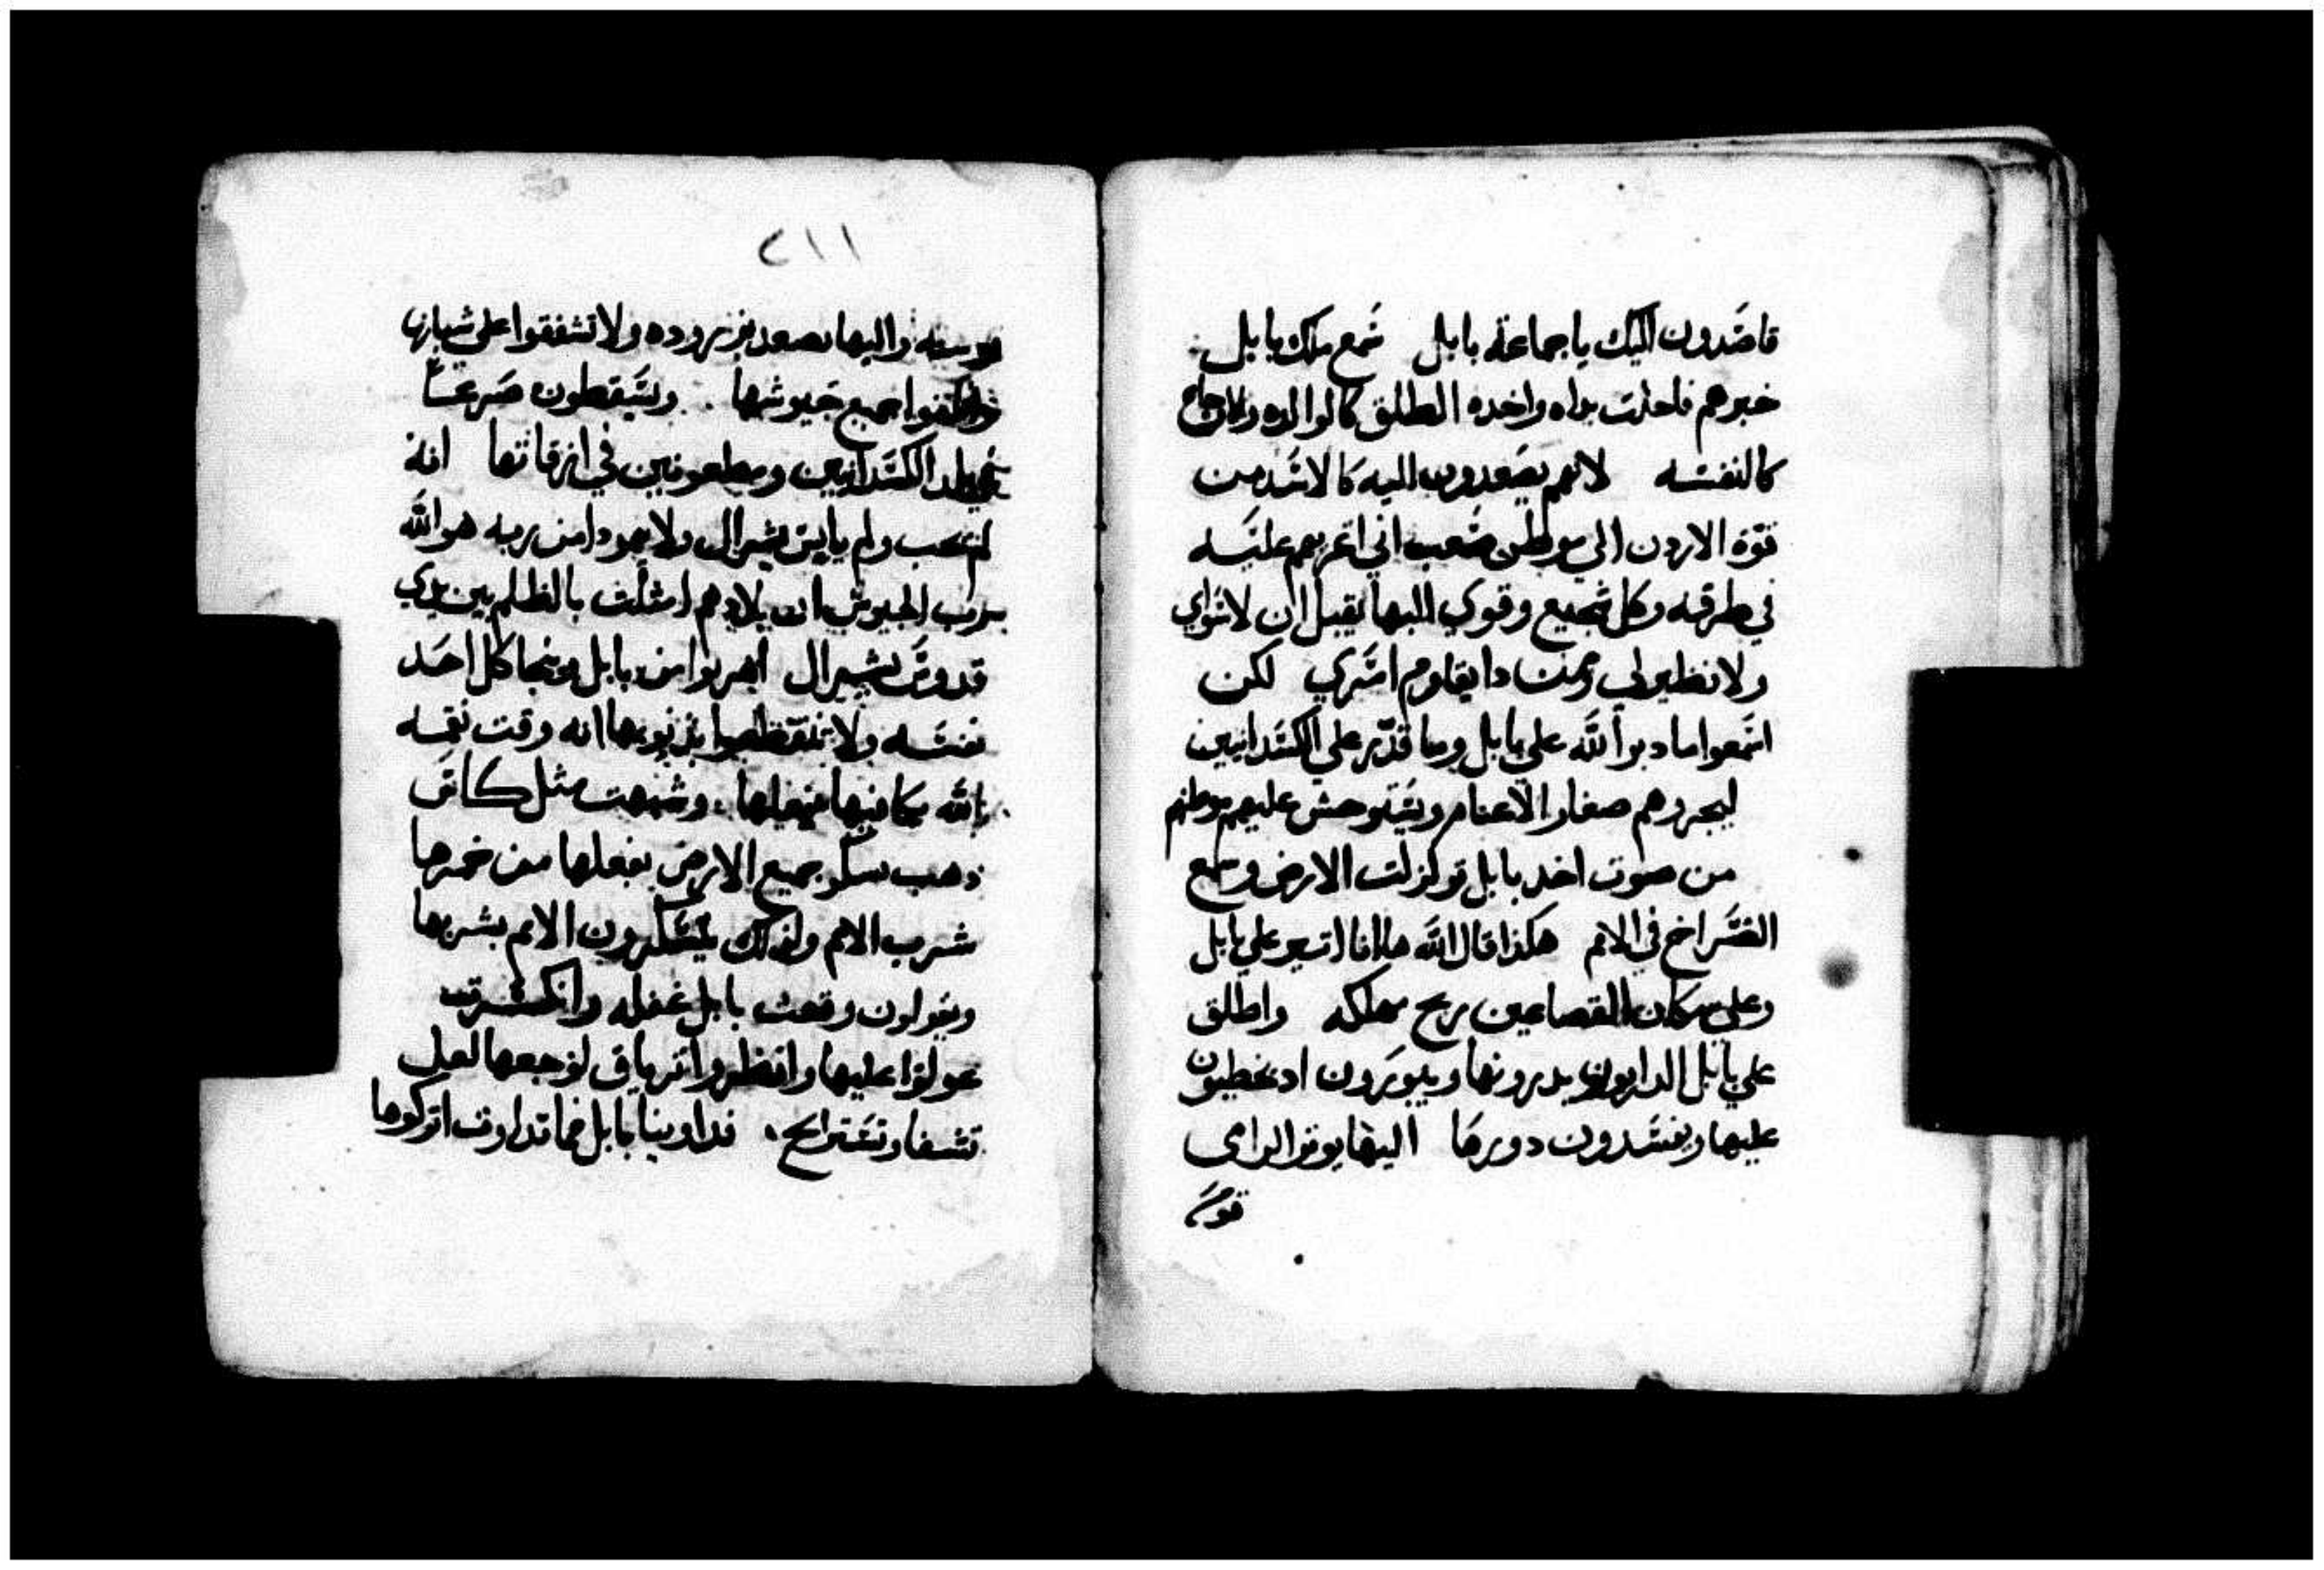 قاصدون اليك يا جماعة بابل سمع ملك بابل
خبرهم فانحلت يداه واخده الطلق كالوالده
كالنفسه لانهم يصعدون اليه كالاسد من
قوة الاردن الي موطن صعب اني اغربهم عليه
في طرقه وكل شجيع وقوي اليها يقبل ان لا سواي
ولا نظير لي ومن دا يقاوم اسري لكن
اسمعوا ما دبر الله علي بابل وما قدر علي الكسدانيين
ليجروهم صغار الاغنام ويستوحش عليهم موطنهم
من صوت اخد بابل تزلزلت الارض وسمع
الصراخ في الامم هكذا قال الله ها انا اتير علي بابل
وعلي سكان القصاعين ريح مهلكه واطلق
علي بابل الداريون يدرونها ويبورون اد يحطيون
عليها ويفسدون دورها اليها يوتر الرامي
قوسه
٢١١
قوسه واليها يصعد بزروده ولا تشفقوا علي شبابها
جميع جيوشها ويسقطون صرعا
في بلد الكسدانيين ومطعونين في ازقاتها انه
لم يحب ولم يايس يسرال ولا يهودا من ربه هو الله
رب الجيوش ان بلادهم امتلت بالظلم بين يدي
قدوس يسرال اهربوا من بابل وينجا كل احد
نفسه ولا تنقطعوا بذنوبها انه وقت نقمه
لله يكافيها فعلها وشبهت مثل كاس
ذهب يسكر جميع الارض بفعلها من خمرها
شرب الامم ولذلك يسكرون الامم بشربها
ويقولون وقعت بابل غفله وانكسرت
عولوا عليها وانظروا ترياق لوجعها لعل
تشفا وتستراح فداوينا بابل فما تداوت اتركوها